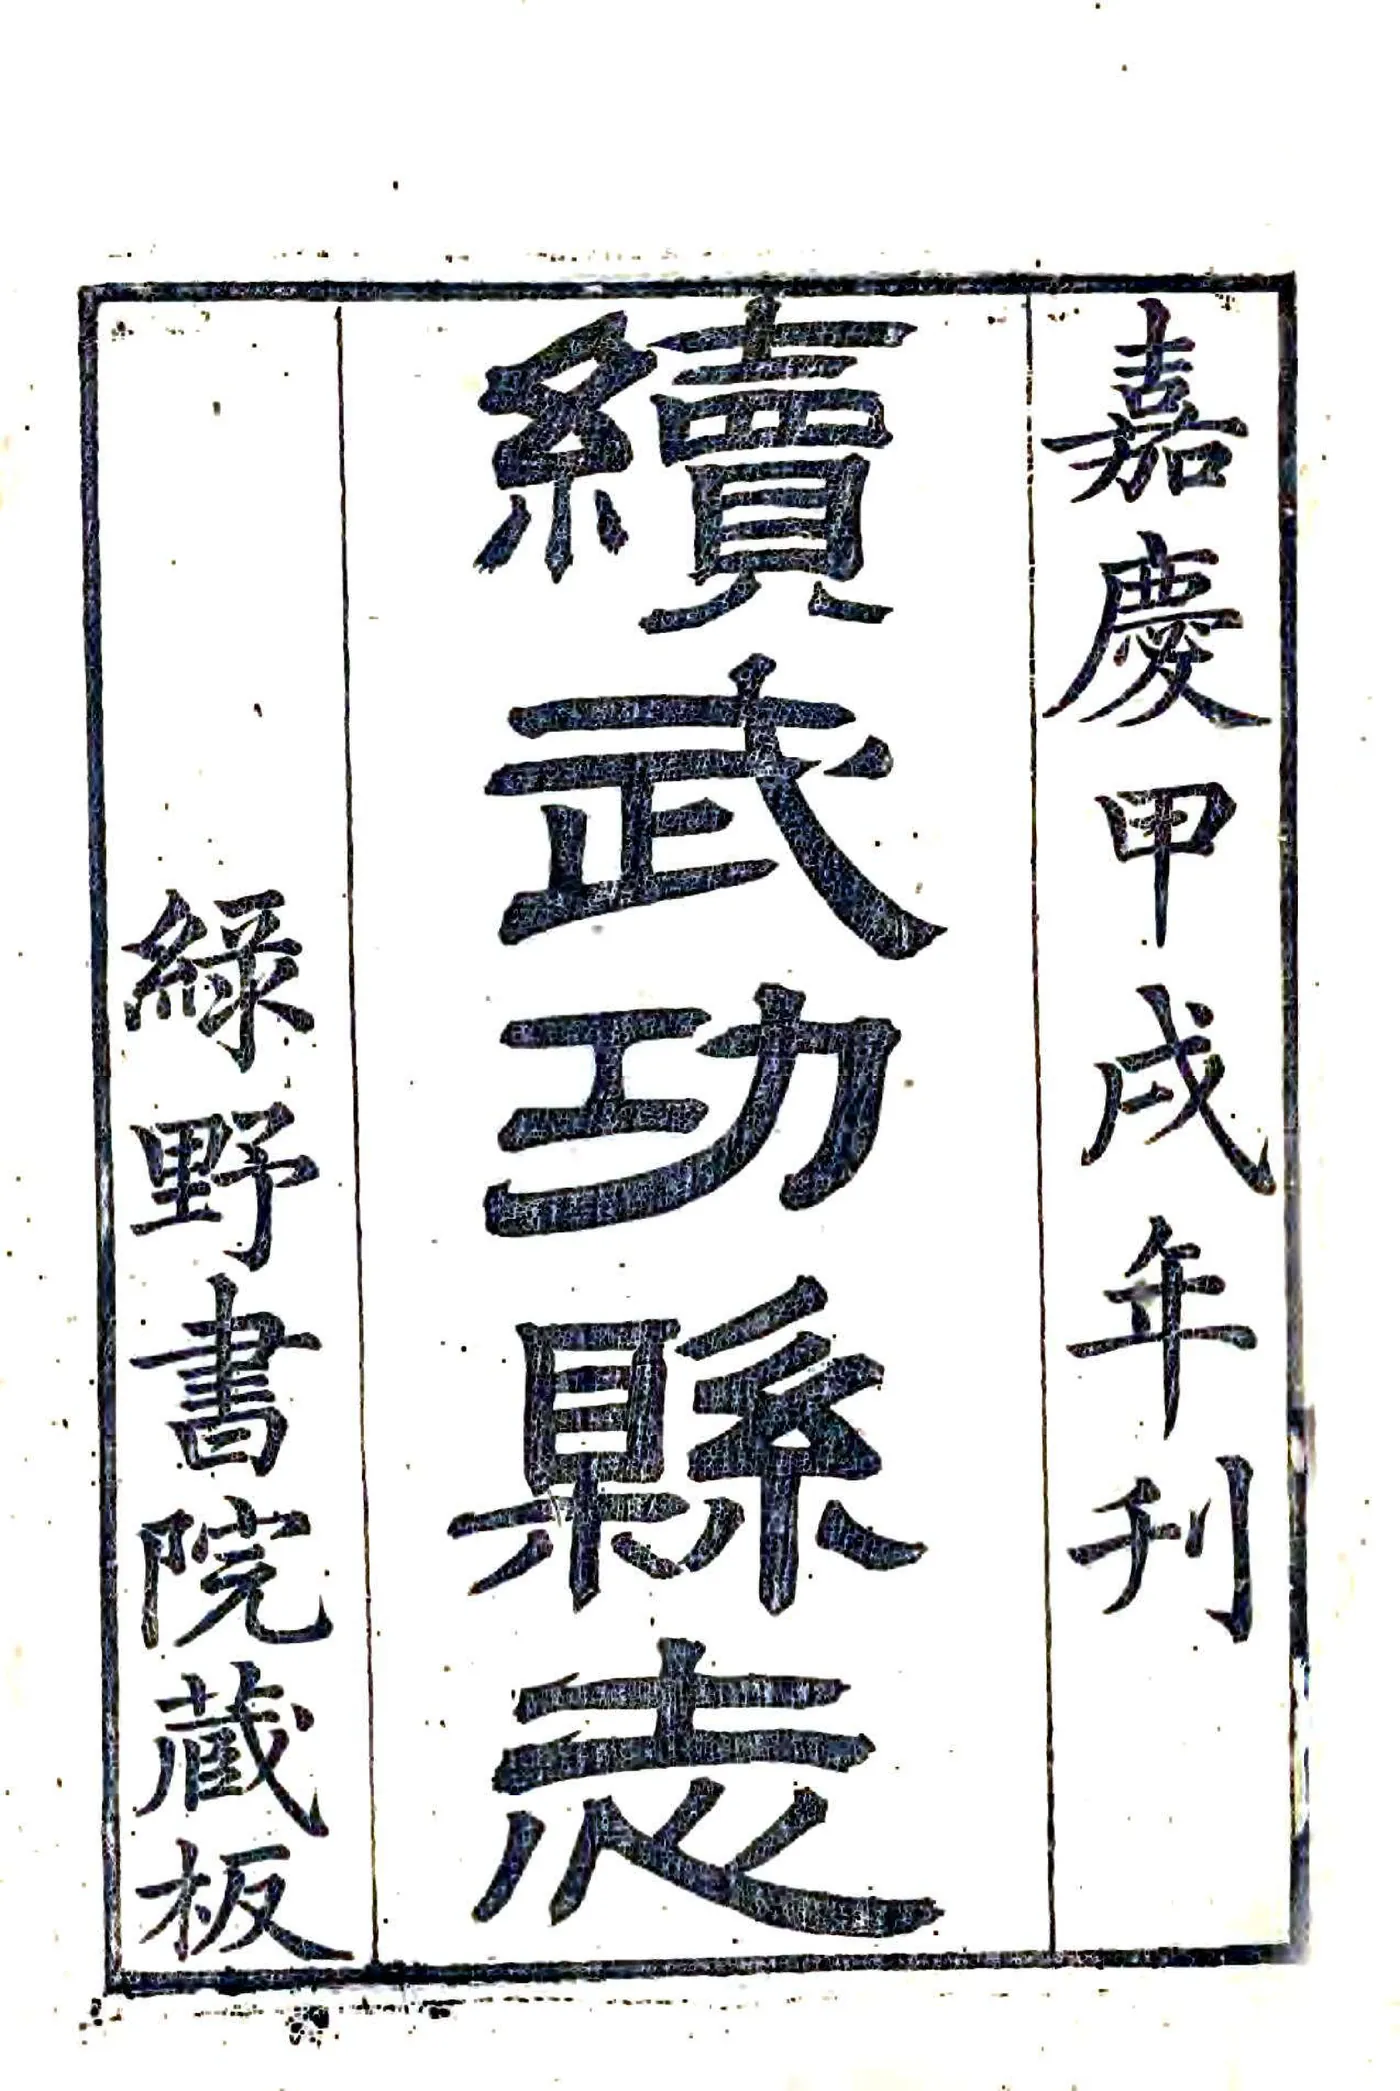 嘉慶甲戌年刊
續武功縣志
綠野書院藏板